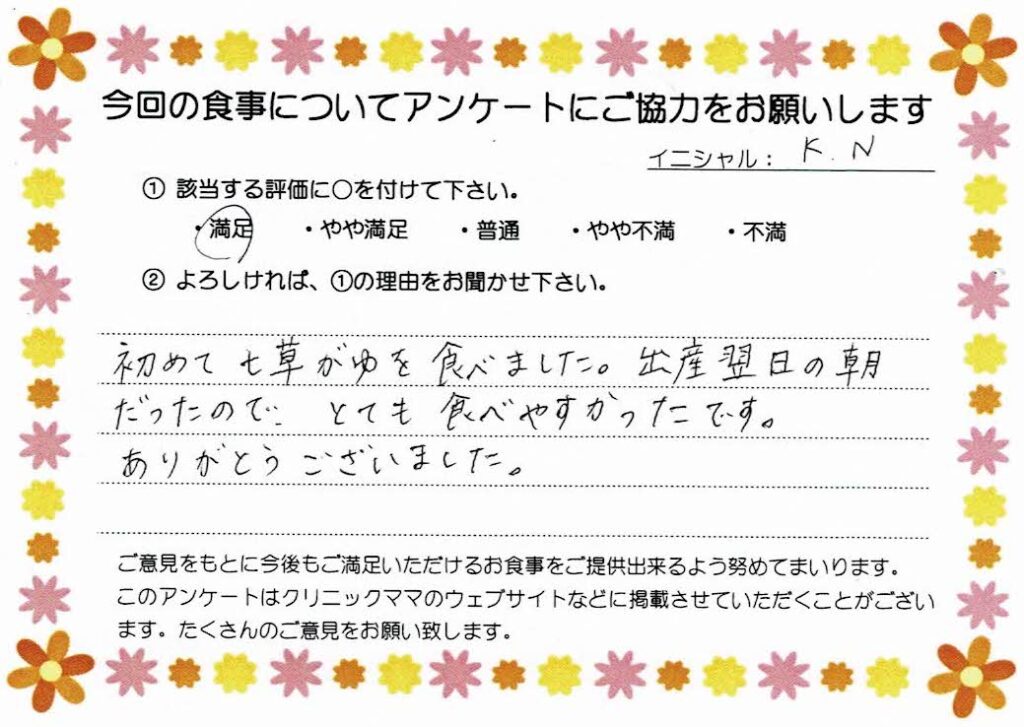 今回の食事についてアンケートにご協力をお願いします
イニシャル： K.N
① 該当する評価に〇を付けて下さい。
・満足 ・やや満足 ・普通 ・やや不満 ・不満
② よろしければ、①の理由をお聞かせ下さい。
初めて七草がゆを食べました。出産翌日の朝
だったので、とても食べやすかったです。
ありがとうございました。
ご意見をもとに今後もご満足いただけるお食事をご提供出来るよう努めてまいります。
このアンケートはクリニックママのウェブサイトなどに掲載させていただくことがござい
ます。たくさんのご意見をお願い致します。